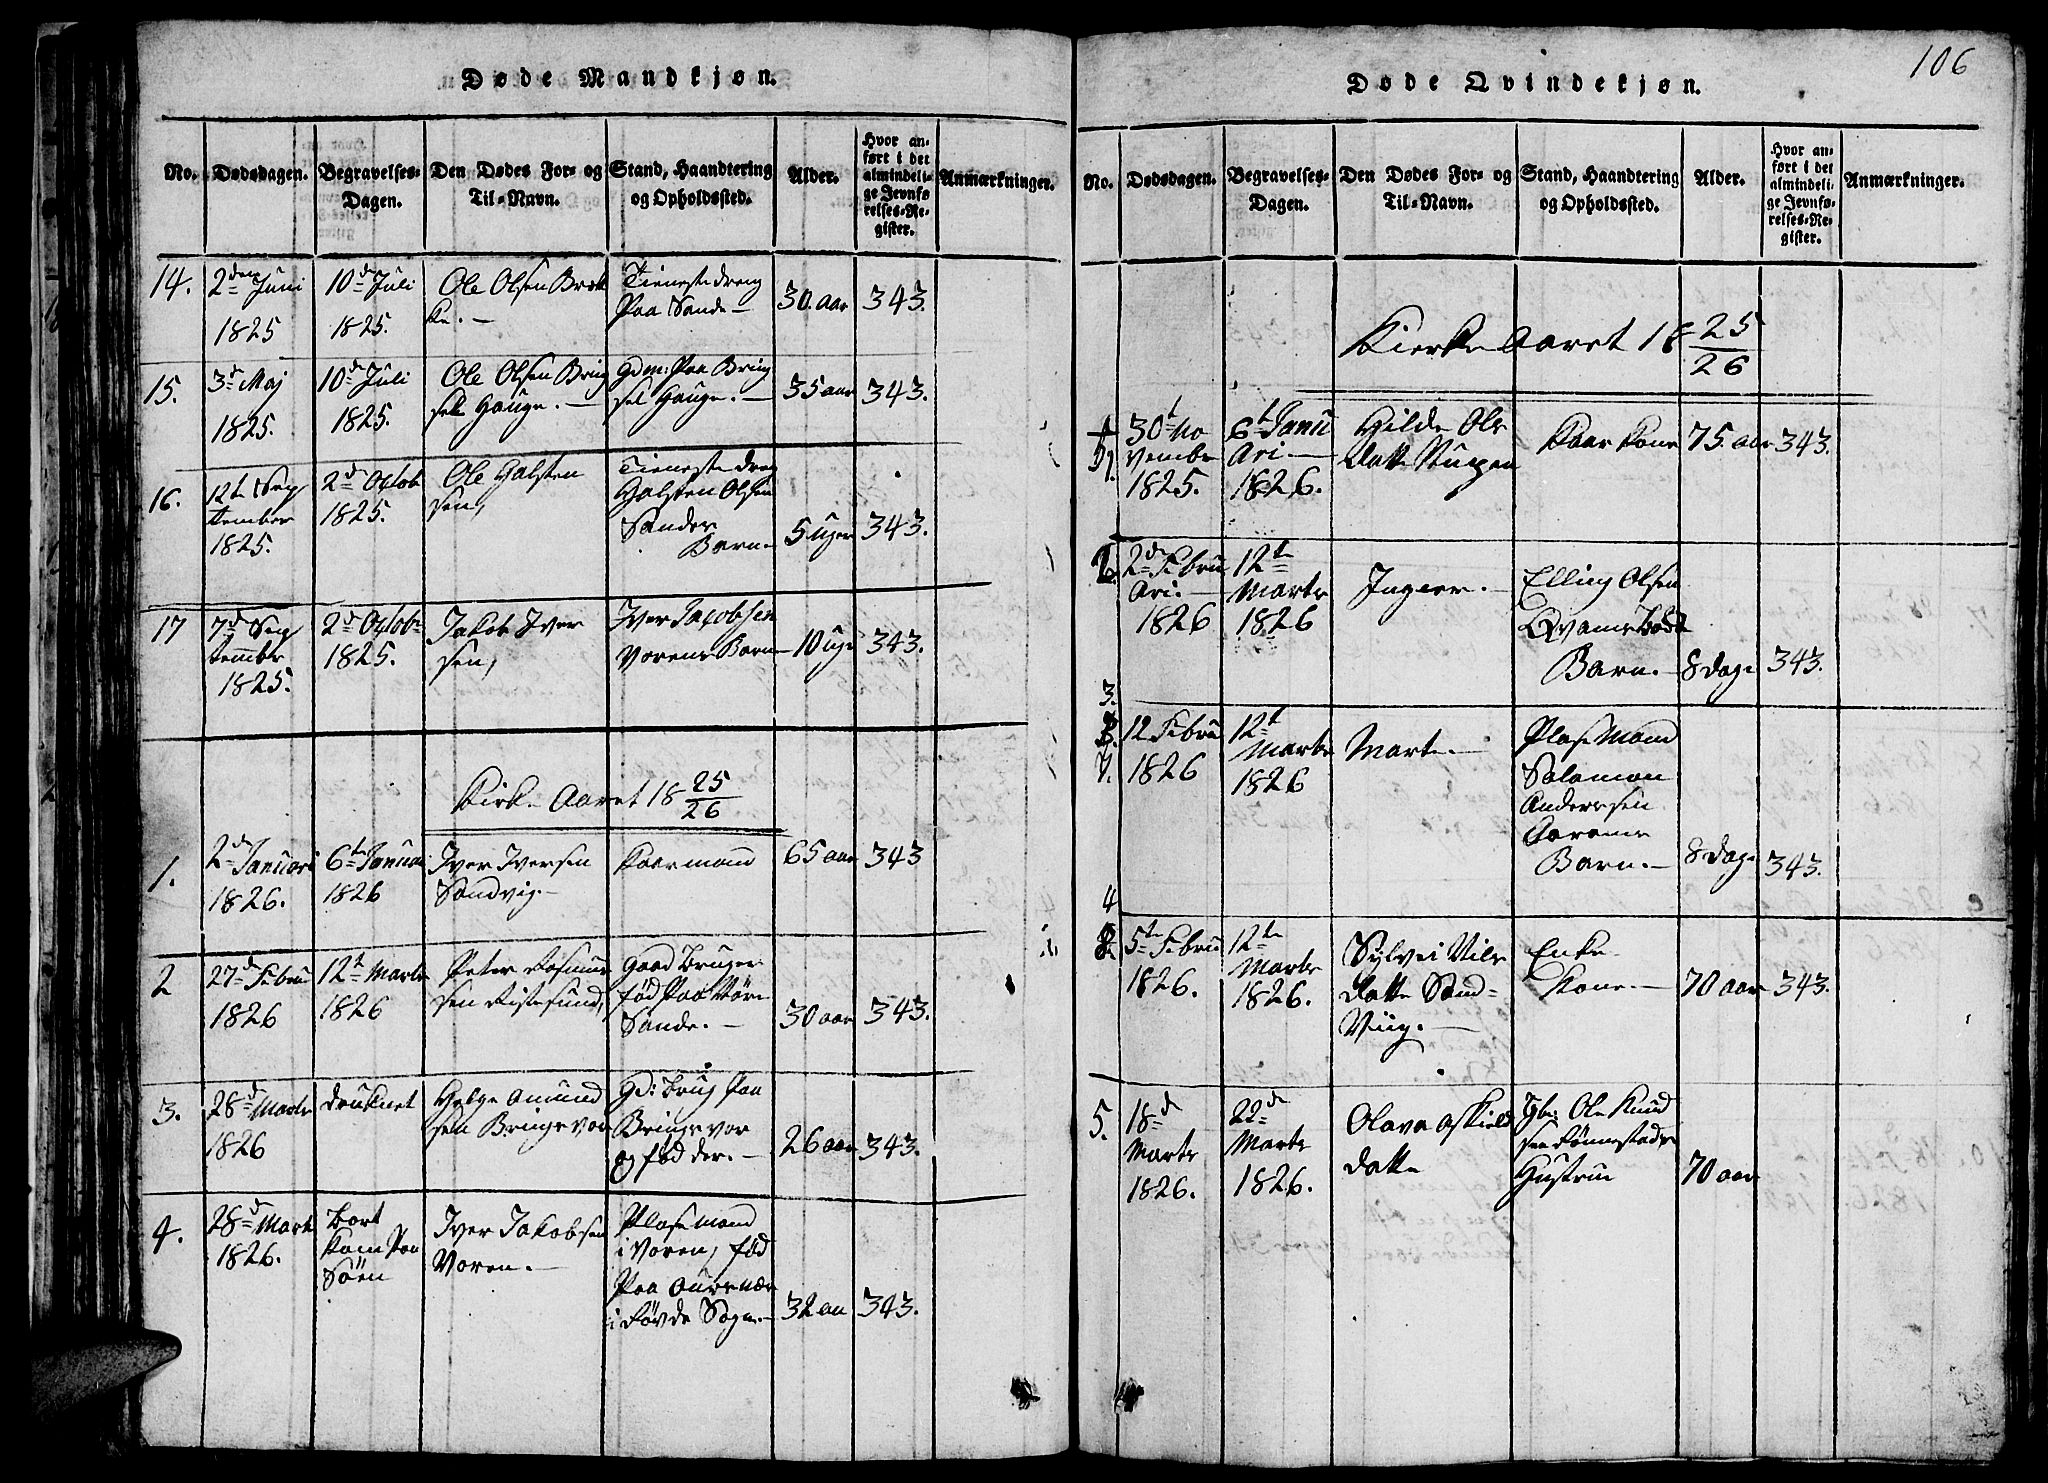 Døde Mandkjøn.
No.
Dødsdagen.
Begravelses-
Dagen.
Den Dødes For- og
Til-Navn.
Stand, Haandtering
og Opholdssted.
Alder.
Hvor an-
ført i det
almindeli-
ge Jevnfø-
relses-Re-
gister.
Anmærkninger.
14.
2den Juni
1825
10d Juli
1825.
Ole Olsen Brek
ke.
Tienestedreng
Paa Sande
30 aar
343.
15.
3d Maj
1825.
10d Juli
1825.
Ole Olsen Bring
sel Hauge.
Gdm: Paa Bring
sel Hauge.
35 aar
343.
16.
12t Sep
tember
1825.
2d Octob
1825.
Ole Halsten
sen,
Tieneste dreng
Halsten Olsen
Sandes
Barn
5 uger
343.
17
7d Sep
tembr
1825.
2d Octob
1825.
Jakob Iver
sen,
Iver Jacobsen
Vorens Barn
10 uge
343.
Kirke Aaret 18 25/26
1.
2d Januari
1826.
6t Januar
1826
Iver Iversen
Sandvig.
Kaarmand
65 aar
343
2
27d Febru
1826
12t Marts
1826
Peter Rasmus
sen Ristesund,
Gaard Bruger
fød Paa Støre
Sande.
30 aar
343.
3.
28d Marts
1826
druknet
Helge Amund
sen Bringsvor
Gd: brug Paa
Bringsvor
og fød der.
26 aar
343.
4.
28d Marts
1826.
Bort
kom Paa
Søen
Iver Jakobsen
Voren.
Plasmand
i Voren, fød
Paa
i Røvde Sogn.
32 aar
343.
106
Døde Qvindekjøn.
No.
Dødsdagen.
Begravelses-
Dagen.
Den Dødes For- og
Til-Navn.
Stand, Haandtering
og Opholdssted.
Alder.
Hvor an-
ført i det
almindeli-
ge Jevnfø-
relses-Re-
gister.
Anmærkninger.
Kierke Aaret 18 25/26
1.
30t No
vembr
1825.
6t Janu
Ari
1826.
Hilde Ols
datte
Kaar Kone
75 aar
343.
2.
2d Febru
Ari.
1826
12te
Marts
1826
Inger.
Elling Olsen
Barn.
8 dage
343.
3.
12 Febru
1826
12t
Marts
1826
Marte.
Plasmand
Salamon
Andersen
Aarems
Barn.
8 dage
343.
4
5te Febru
1826.
12te
Marts
1826.
Sylvei Nils
datte Sand-
Viig.
Enke
Kone.
70 aar
343.
5.
18d
Marts
1826.
22d
Marts
1826.
Olava Askield
datte
Ole Knud
sen Rønnestads
Hustrue
70 aar